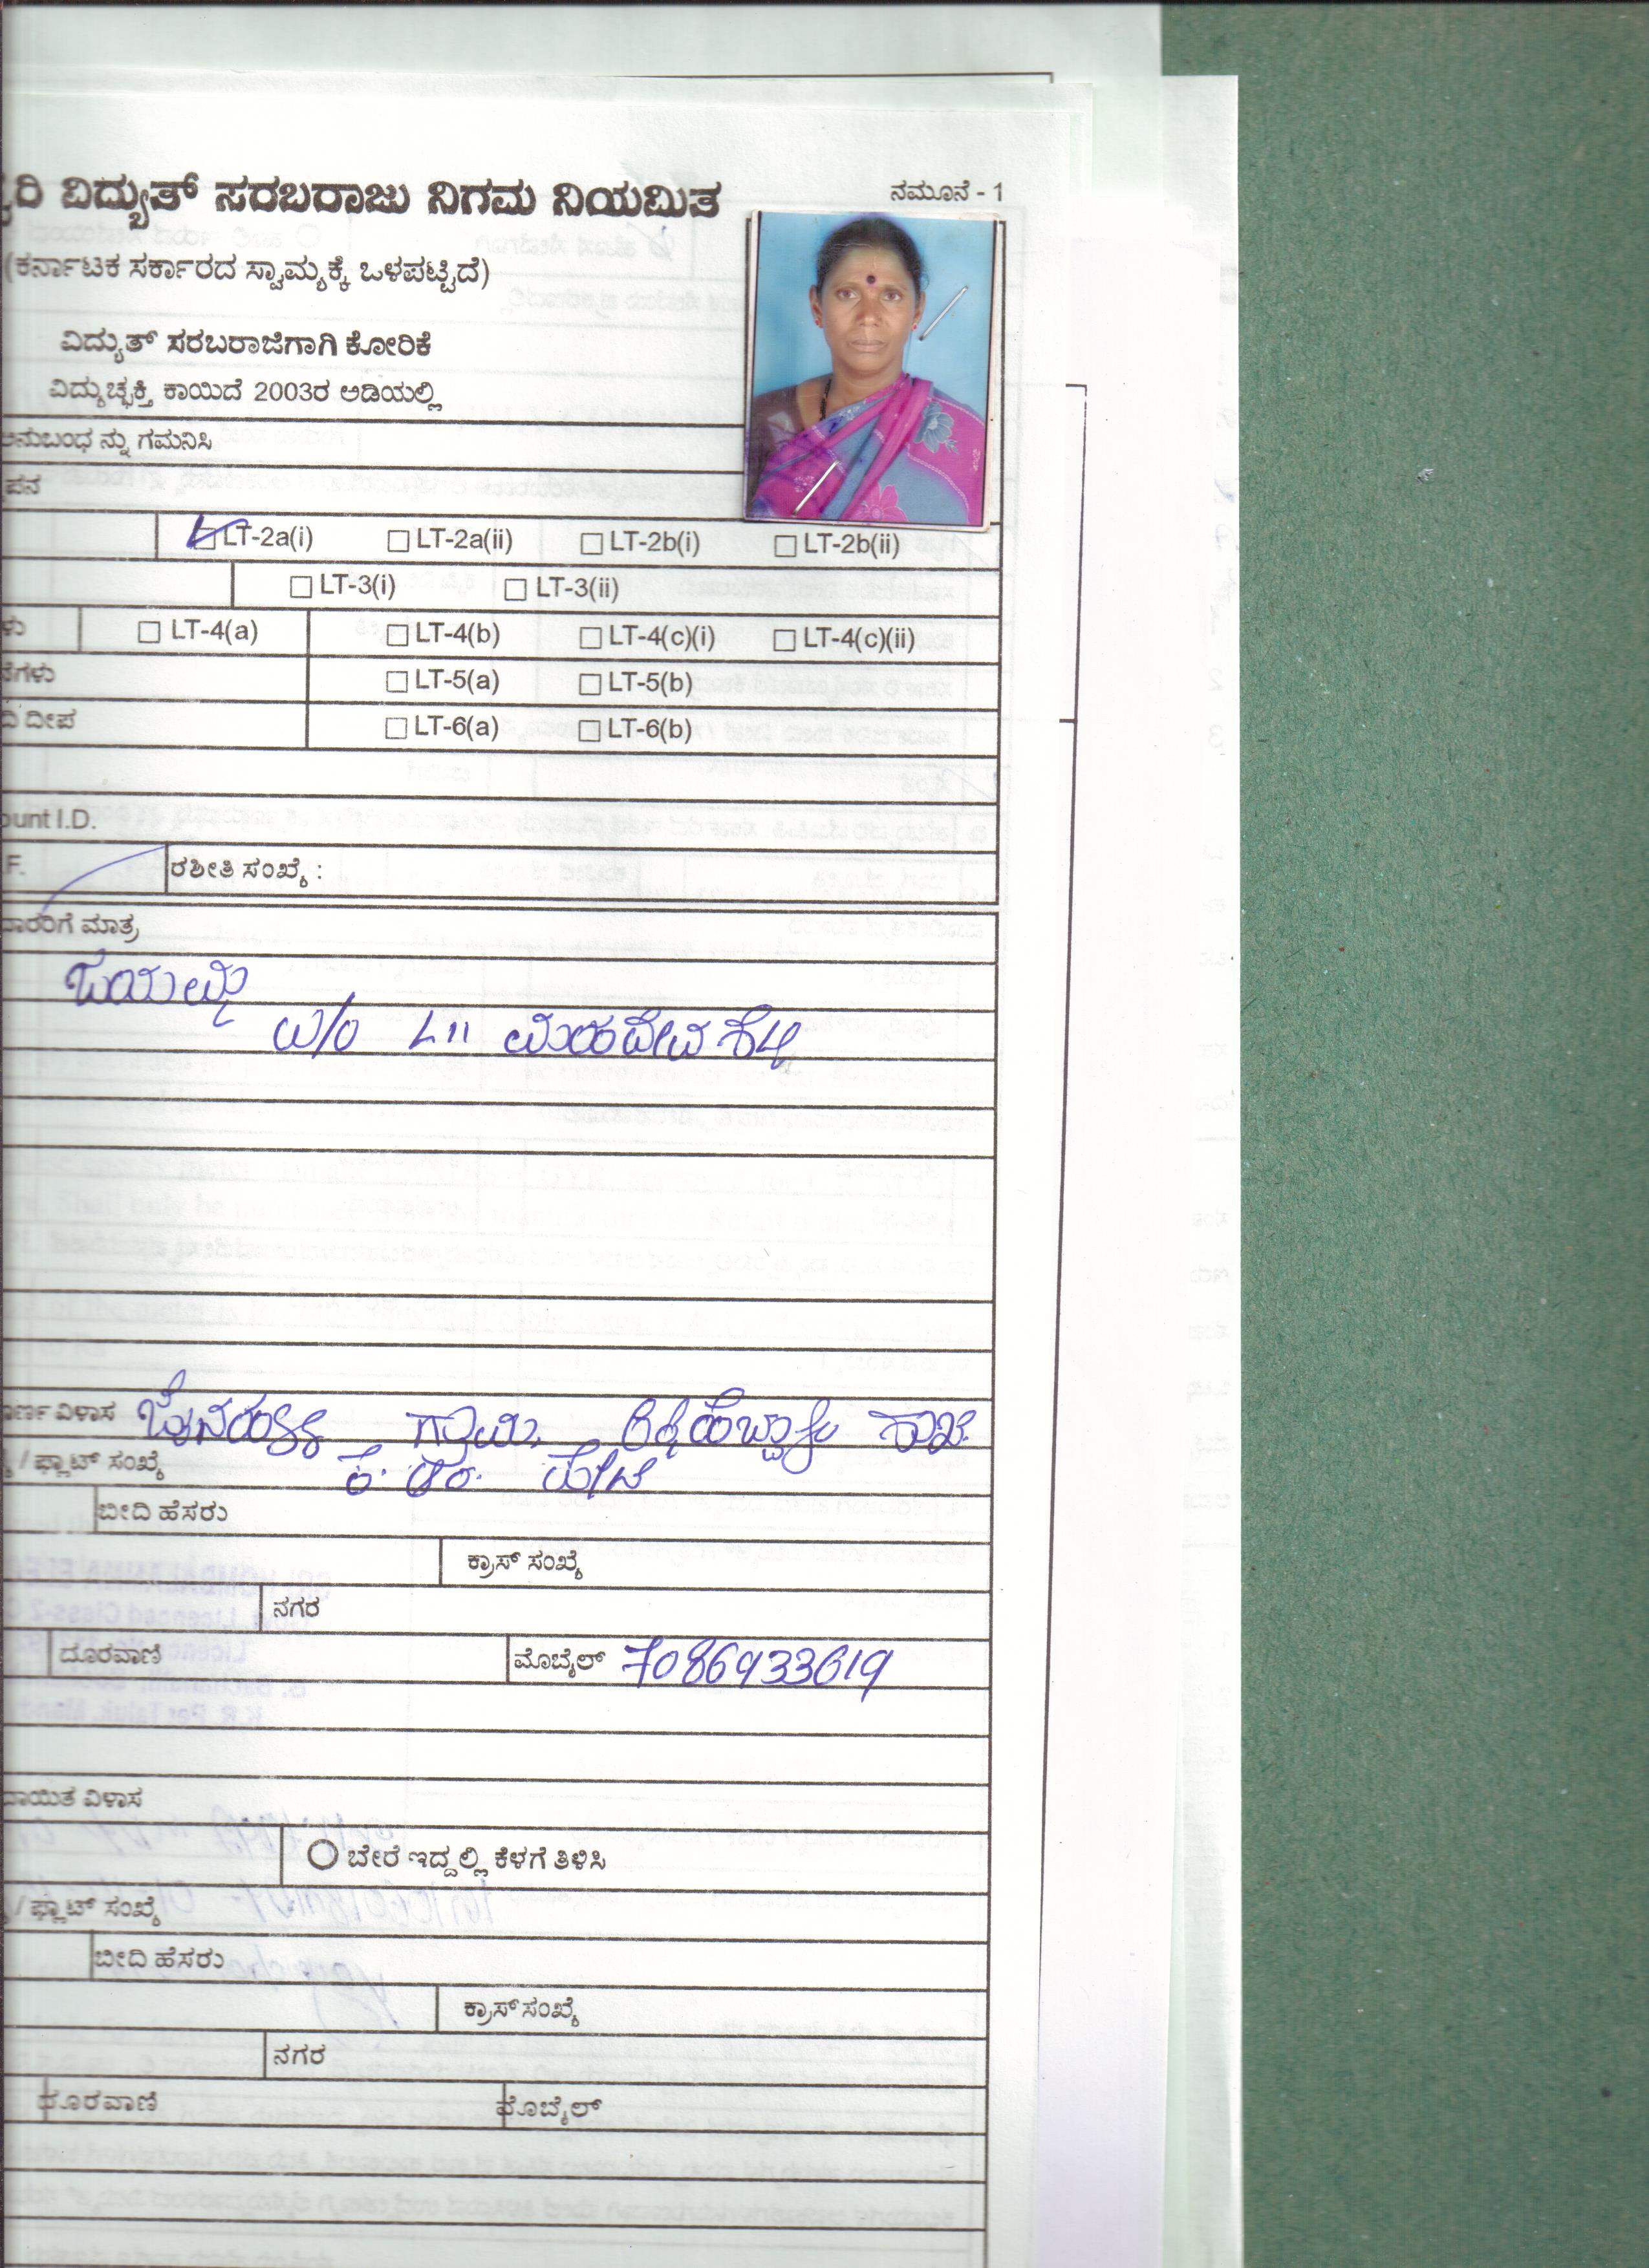 ರಿ ವಿದ್ಯುತ್ ಸರಬರಾಜು ನಿಗಮ ನಿಯಮಿತ
ನಮೂನೆ - 1
(ಕರ್ನಾಟಕ ಸರ್ಕಾರದ ಸ್ವಾಮ್ಯಕ್ಕೆ ಒಳಪಟ್ಟಿದೆ)
ವಿದ್ಯುತ್ ಸರಬರಾಜಿಗಾಗಿ ಕೋರಿಕೆ
ವಿದ್ಯುಚ್ಛಕ್ತಿ ಕಾಯಿದೆ 2003ರ ಅಡಿಯಲ್ಲಿ
ಅನುಬಂಧ ನ್ನು ಗಮನಿಸಿ
ಪನ
LT-2a(i) LT-2a(ii) LT-2b(i) LT-2b(ii)
LT-3(i) LT-3(ii)
ಳು LT-4(a) LT-4(b) LT-4(c)(i) LT-4(c)(ii)
ತೆಗಳು LT-5(a) LT-5(b)
ದಿ ದೀಪ LT-6(a) LT-6(b)
ount I.D.
.F. ರಶೀತಿ ಸಂಖ್ಯೆ :
ದಾರರಿಗೆ ಮಾತ್ರ
W/o
ರ್ಣ ವಿಳಾಸ ಗ್ರಾಮ
/ ಫ್ಲಾಟ್ ಸಂಖ್ಯೆ ಕೆ. ಆರ್. ಪೇಟೆ
ಬೀದಿ ಹೆಸರು
ಕ್ರಾಸ್ ಸಂಖ್ಯೆ
ನಗರ
ದೂರವಾಣಿ ಮೊಬೈಲ್ 7086933619
ದಾಯಿತ ವಿಳಾಸ
ಬೇರೆ ಇದ್ದಲ್ಲಿ ಕೆಳಗೆ ತಿಳಿಸಿ
/ ಫ್ಲಾಟ್ ಸಂಖ್ಯೆ
ಬೀದಿ ಹೆಸರು
ಕ್ರಾಸ್ ಸಂಖ್ಯೆ
ನಗರ
ದೂರವಾಣಿ ಮೊಬೈಲ್